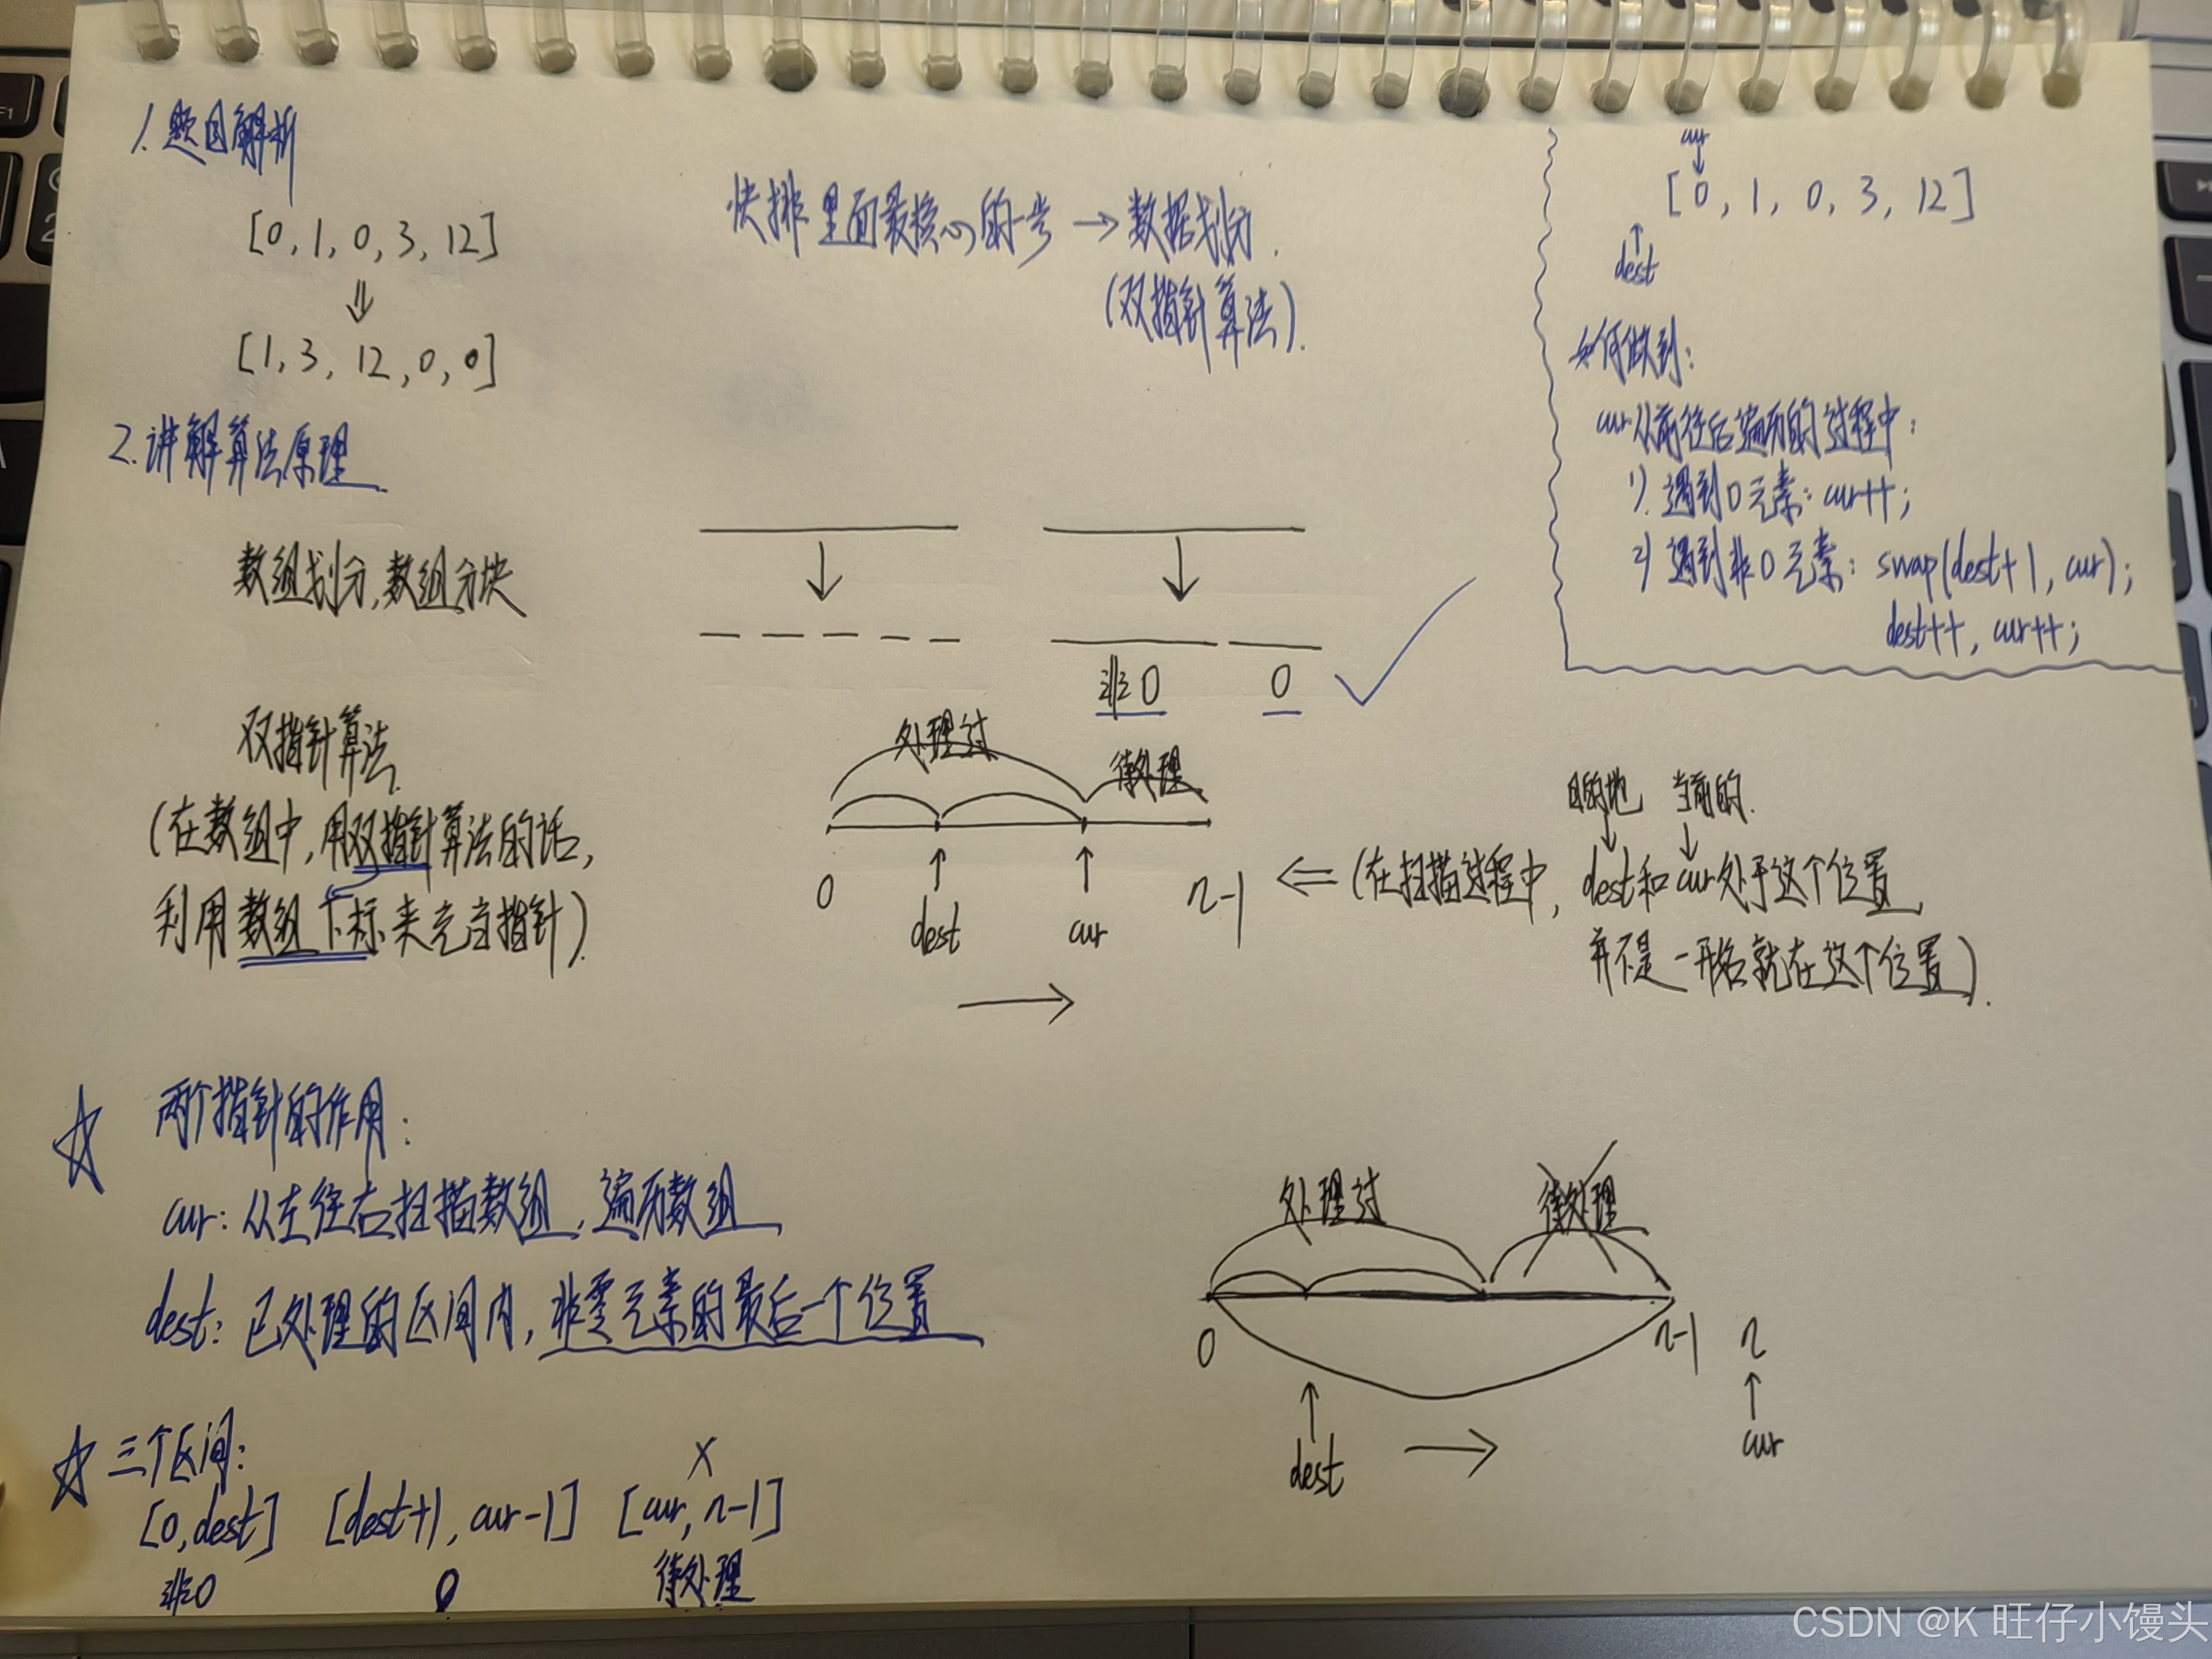 1.题目解析
[0,1,0,3,12]
⇓
[1,3,12,0,0]
快排里面最核心的一步→数据划分.
(双指针算法).
2.讲解算法原理
数组划分,数组分块
非0 0
双指针算法.
(在数组中,用双指针算法的话,
利用数组下标来充当指针).
处理过 待处理
0 dest cur n-1
→
目的地 当前的.
⇐(在扫描过程中,dest和cur处于这个位置
并不是一开始就在这个位置).
cur
↓
[0,1,0,3,12]
↑
dest
如何做到:
cur从前往后遍历的过程中:
1).遇到0元素:cur++;
2)遇到非0元素:swap(dest+1,cur);
dest++,cur++;
☆ 两个指针的作用:
cur:从左往右扫描数组,遍历数组
dest:已处理的区间内,非零元素的最后一个位置
处理过 待处理
0 n-1 n
dest → cur
☆ 三个区间:
×
[0,dest] [dest+1,cur-1] [cur,n-1]
非0 0 待处理
F1
CSDN @K 旺仔小馒头